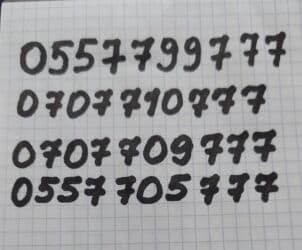 0557799777
0707710777
0707709777
0557705777